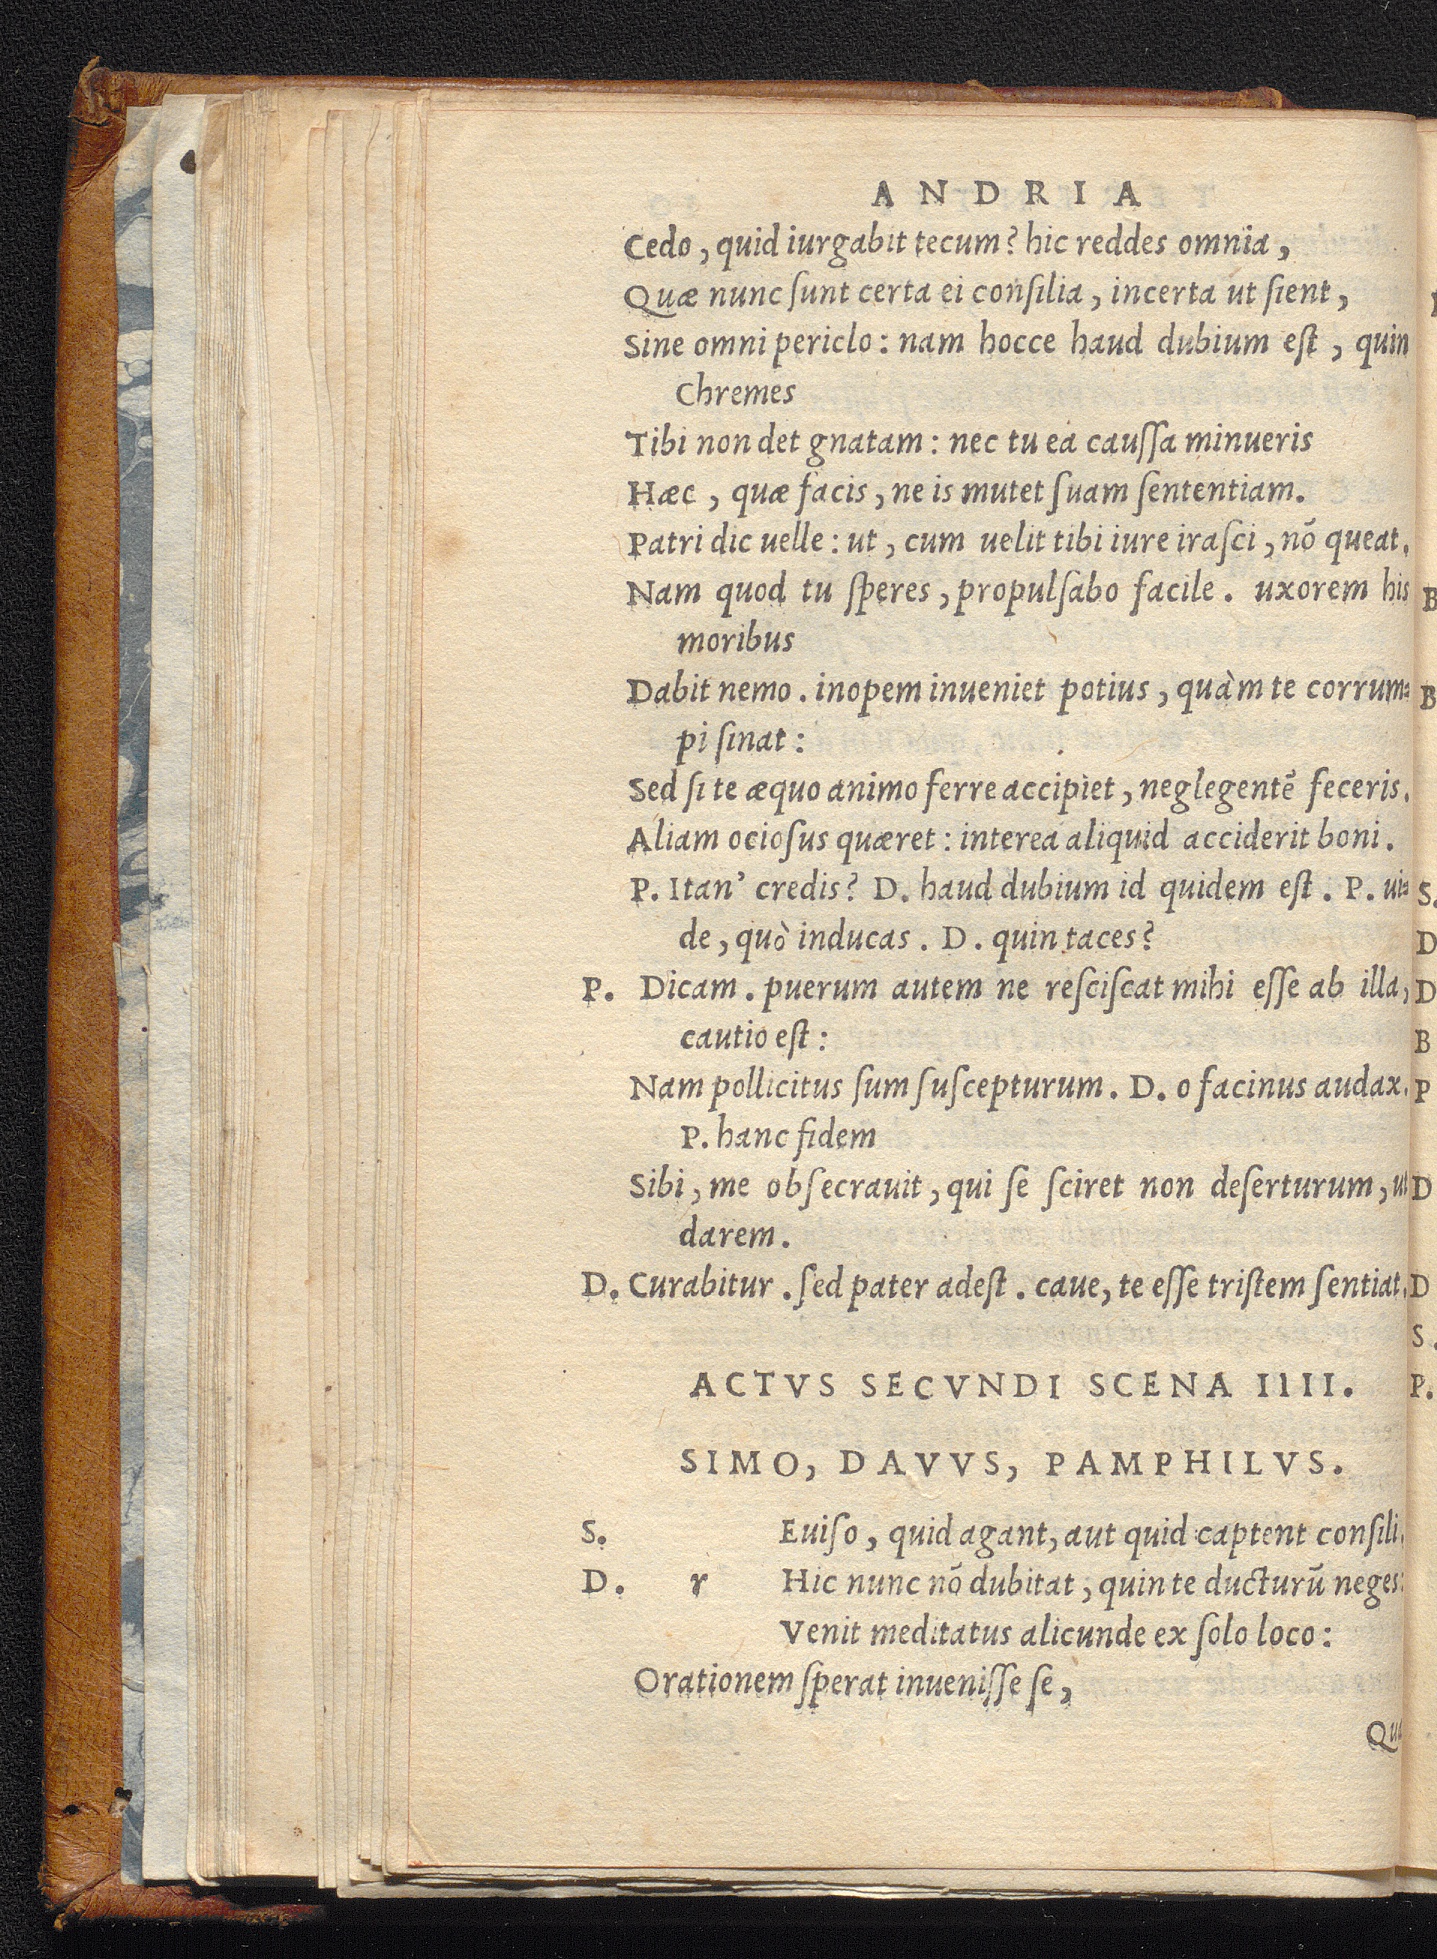 ANDRIA
Cedo, quid iurgabit tecum? hic reddes omnia,
Quæ nunc ſunt certa ei conſilia, incerta ut ſient,
Sine omni periclo: nam hocce haud dubium eſt, quin
Chremes
Tibi non det gnatam: nec tu ea cauſſa minueris
Hæc, quæ facis, ne is mutet ſuam ſententiam.
Patri dic uelle: ut, cum uelit tibi iure iraſci, nō queat.
Nam quod tu ſperes, propulſabo facile. uxorem his
moribus
Dabit nemo. inopem inueniet potius, quàm te corrum=
pi ſinat:
Sed ſi te æquo animo ferre accipiet, neglegentē feceris.
Aliam ocioſus quæret: interea aliquid acciderit boni.
P. Itan' credis? D. haud dubium id quidem eſt. P. ui=
de, quò inducas. D. quin taces?
P. Dicam. puerum autem ne reſciſcat mihi eſſe ab illa,
cautio eſt:
Nam pollicitus ſum ſuſcepturum. D. o facinus audax.
P. hanc fidem
Sibi, me obſecrauit, qui ſe ſciret non deſerturum, ut
darem.
D. Curabitur. ſed pater adeſt. caue, te eſſe triſtem ſentiat.
ACTVS SECVNDI SCENA IIII.
SIMO, DAVVS, PAMPHILVS.
S. Euiſo, quid agant, aut quid captent conſili.
D. r Hic nunc nō dubitat, quin te ducturū neges:
Venit meditatus alicunde ex ſolo loco:
Orationem ſperat inueniſſe ſe,
Qua
B
B
S.
D
D
B
P
D
D
S.
P.